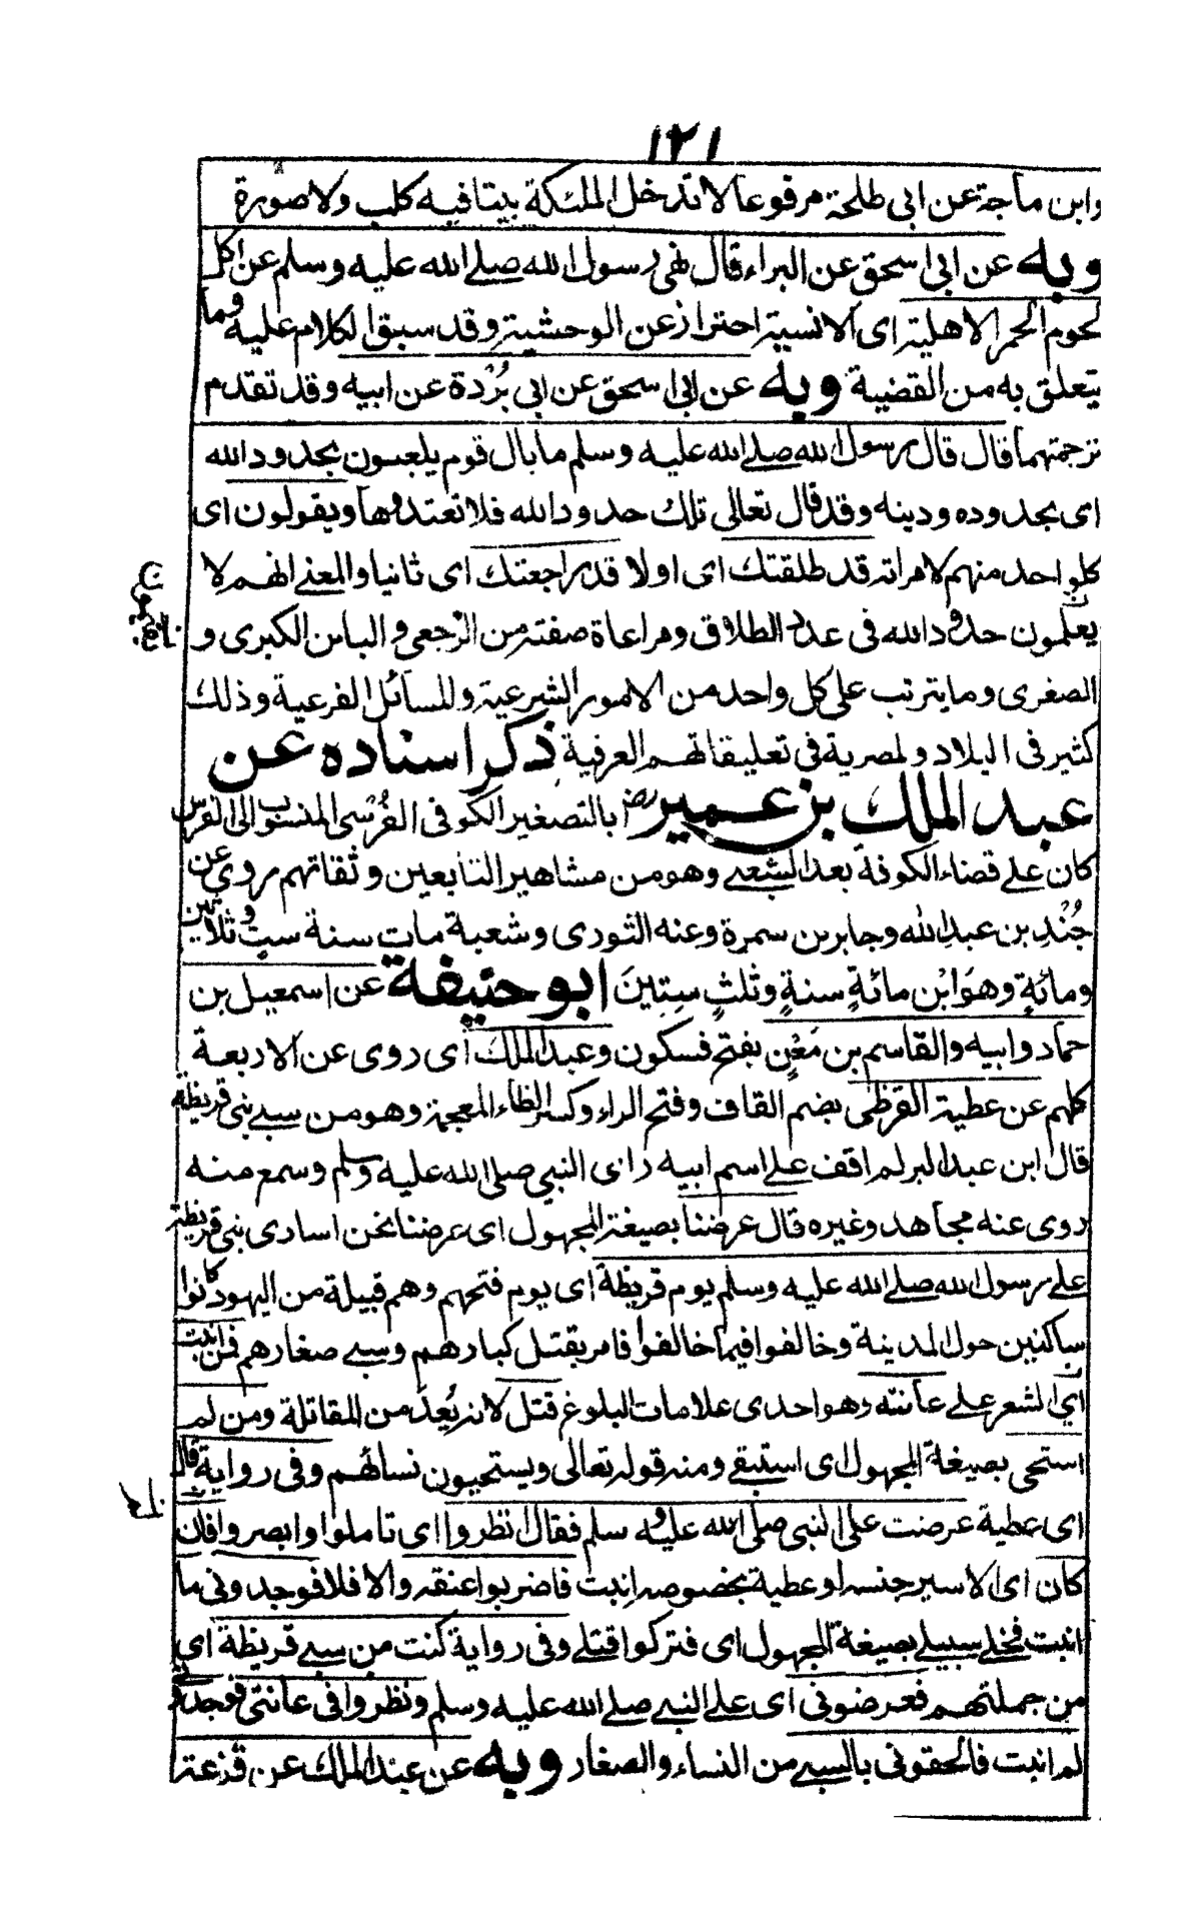 ١٢١
وابن ماجة عن ابى طلحة مرفوعا لا تدخل الملئكة بيتا فيه كلب ولا صورة
وبه عن ابى اسحق عن البراء قال نهى رسول الله صلے الله عليه وسلم عن اكل
لحوم الحمر الاهلية اى الانسية احترازعن الوحشية وقد سبق الكلام عليه وما
يتعلق به من القضية وبه عن ابى اسحق عن ابى بُرْدة عن ابيه وقد تقدم
ترجمتهما قال قال رسول الله صلے الله عليه وسلم ما بال قوم يلعبون بحدود الله
اى بحدوده ودينه وقد قال تعالى تلك حدود الله فلا تعتدوها ويقولون اى
كلواحد منهم لامراته قد طلقتك اى اولا قد راجعتك اى ثانيا والمعنے انهم لا
يعلمون حدود الله فى عدد الطلاق ومراعاة صفته من الرجعى والبائن الكبرى و
الصغرى وما يترتب على كل واحد من الامور الشرعية والمسائل الفرعية وذلك
كثير فى البلاد المصرية فى تعليقاتهم العرفية ذكر اسناده عن
عبد الملك بن عمير رضـ بالتصغير الكوفى القُرْشى المنسوب الى القرس
كان علے قضاء الكوفة بعد الشعبے وهو من مشاهير التابعين وثقاتهم روى عن
جُنْدب بن عبد الله وجابر بن سمرة وعنه الثورى وشعبة مات سنة ستٍ وثلاثين
ومائةٍ وهوَ ابْن مائةٍ سنةٍ وثلثٍ سِتِينَ ابو حنيفة عن اسمعيل بن
حماد وابيه والقاسم بن مَعْنٍ بفتح فسكون وعبد الملك اى روى عن الاربعة
كلهم عن عطية القرظى بضم القاف وفتح الراء وكسر الظاء المعجمة وهو من سبے بنى قريظة
قال ابن عبد البر لم اقف علے اسم ابيه راى النبي صلى الله عليه وسلم وسمع منه
روى عنه مجاهد وغيره قال عرضنا بصيغة المجهول اى عرضنا نحن اسارى بنى قريظة
علے رسول الله صلے الله عليه وسلم يوم قريظة اى يوم فتحهم وهم قبيلة من اليهود كانوا
ساكنين حول المدينة وخالفوا فيما خالفوا فامر بقتل كبارهم وسبے صغارهم فمن انبت
اي الشعر علے عانته وهو احدى علامات البلوغ قتل لانه يُعدّ من المقاتلة ومن لم
استحى بصيغة المجهول اى استبقے ومنه قوله تعالى ويستحيون نسائهم وفى رواية قال
اى عطية عرضت على النبى صلى الله عليه وسلم فقال انظروا اى تاملوا وابصروا فان
كان اى الاسير جنسه او عطية بخصوصه انبت فاضربوا عنقه والا فلا فوجدونى ما
انبت فخلے سبيلے بصيغة المجهول اى فتركوا قتلے وفى رواية كنت من سبے قريظة اى
من جملتهم فعرضونى اى علے النبے صلے الله عليه وسلم ونظروا فى عانتى فوجدونے
لم انبت فالحقونى بالسبے من النساء والصغار وبه عن عبد الملك عن قزعة